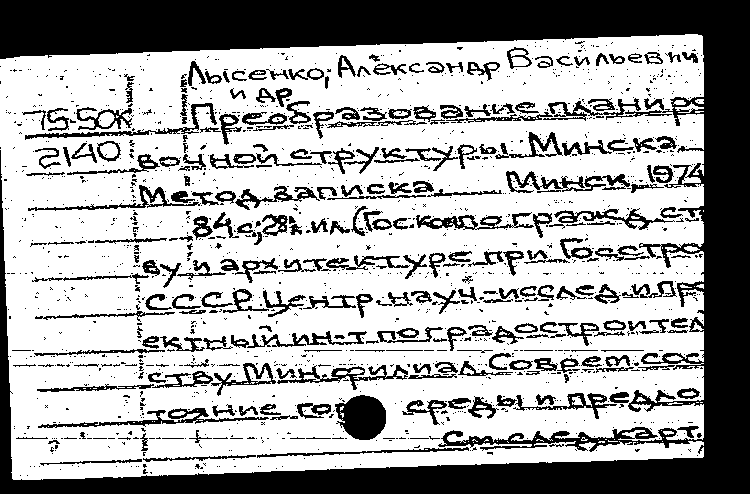 Лысенко, Александр Васильевич
и др
75-50к Преобразование планиро
2140 вочной структуры Минска.
Метод. записка. Минск, 1974
84 с; 28 л. ил. (Госком по гражд. ст
ву и архитектуре при Госстро
СССР. Центр. науч-исслед. и про
ектный ин-т по градостроител
ству Мин. филиал. Соврем. сос
тояние гор среды и предло
См. след. карт.